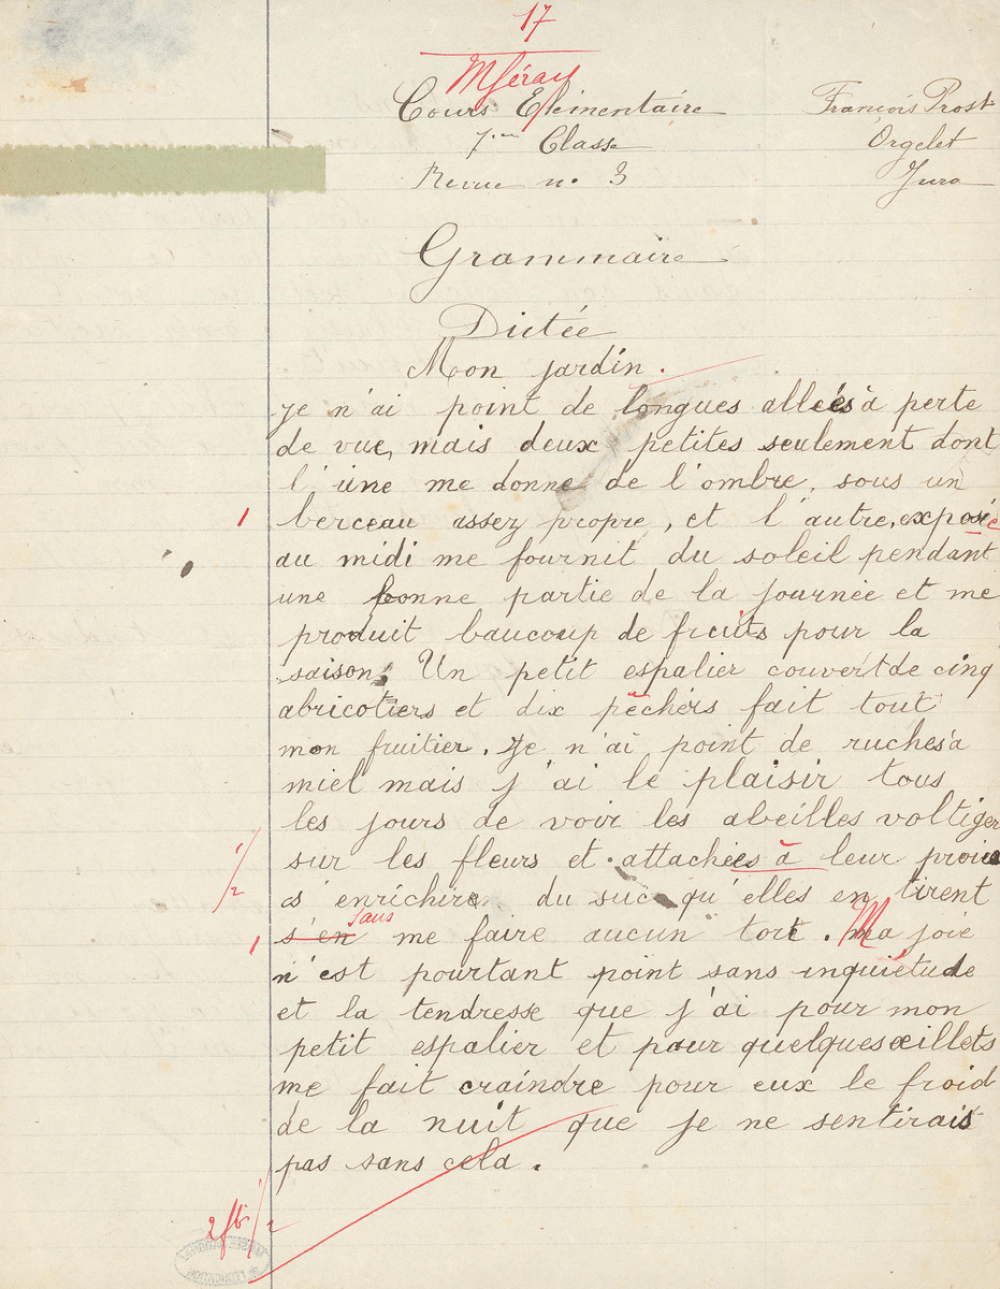 17
Cours Elémentaire
François Prost
7ème Classe
Orgelet
Revue n. 3
Jura
Grammaire
Dictée
Mon jardin.
Je n'ai point de longues allées à perte
de vue, mais deux petites seulement dont
l'une me donne de l'ombre, sous un
1 berceau assez propre, et l'autre, exposée
au midi me fournit du soleil pendant
une bonne partie de la journée et me
produit baucoup de fruits pour la
saison; Un petit espalier couvert de cinq
abricotiers et dix pêchers fait tout
mon fruitier. Je n'ai point de ruches à
miel mais j'ai le plaisir tous
les jours de voir les abeilles voltiger
sur les fleurs et attachées à leur proie
1/2 s'enrichire du suc qu'elles en tirent
sans
1 s'en me faire aucun tort. Ma joie
n'est pourtant point sans inquiétude
et la tendresse que j'ai pour mon
petit espalier et pour quelques œillets
me fait craindre pour eux le froid
de la nuit que je ne sentirais
pas sans cela.
2 f 1/2